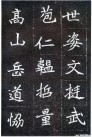 世姿文挺武
苞仁韞量
高山岳道協